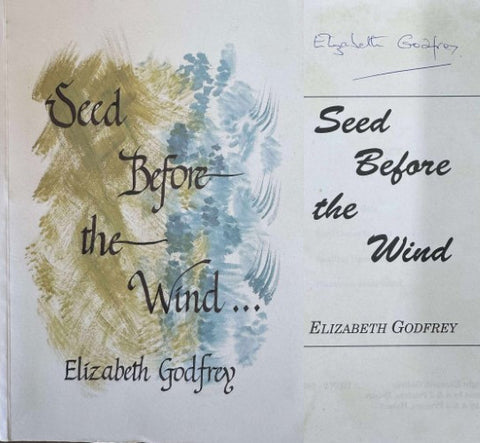 Seed
Before
the
Wind...
Elizabeth Godfrey
Elizabeth Godfrey
Seed
Before
the
Wind
ELIZABETH GODFREY